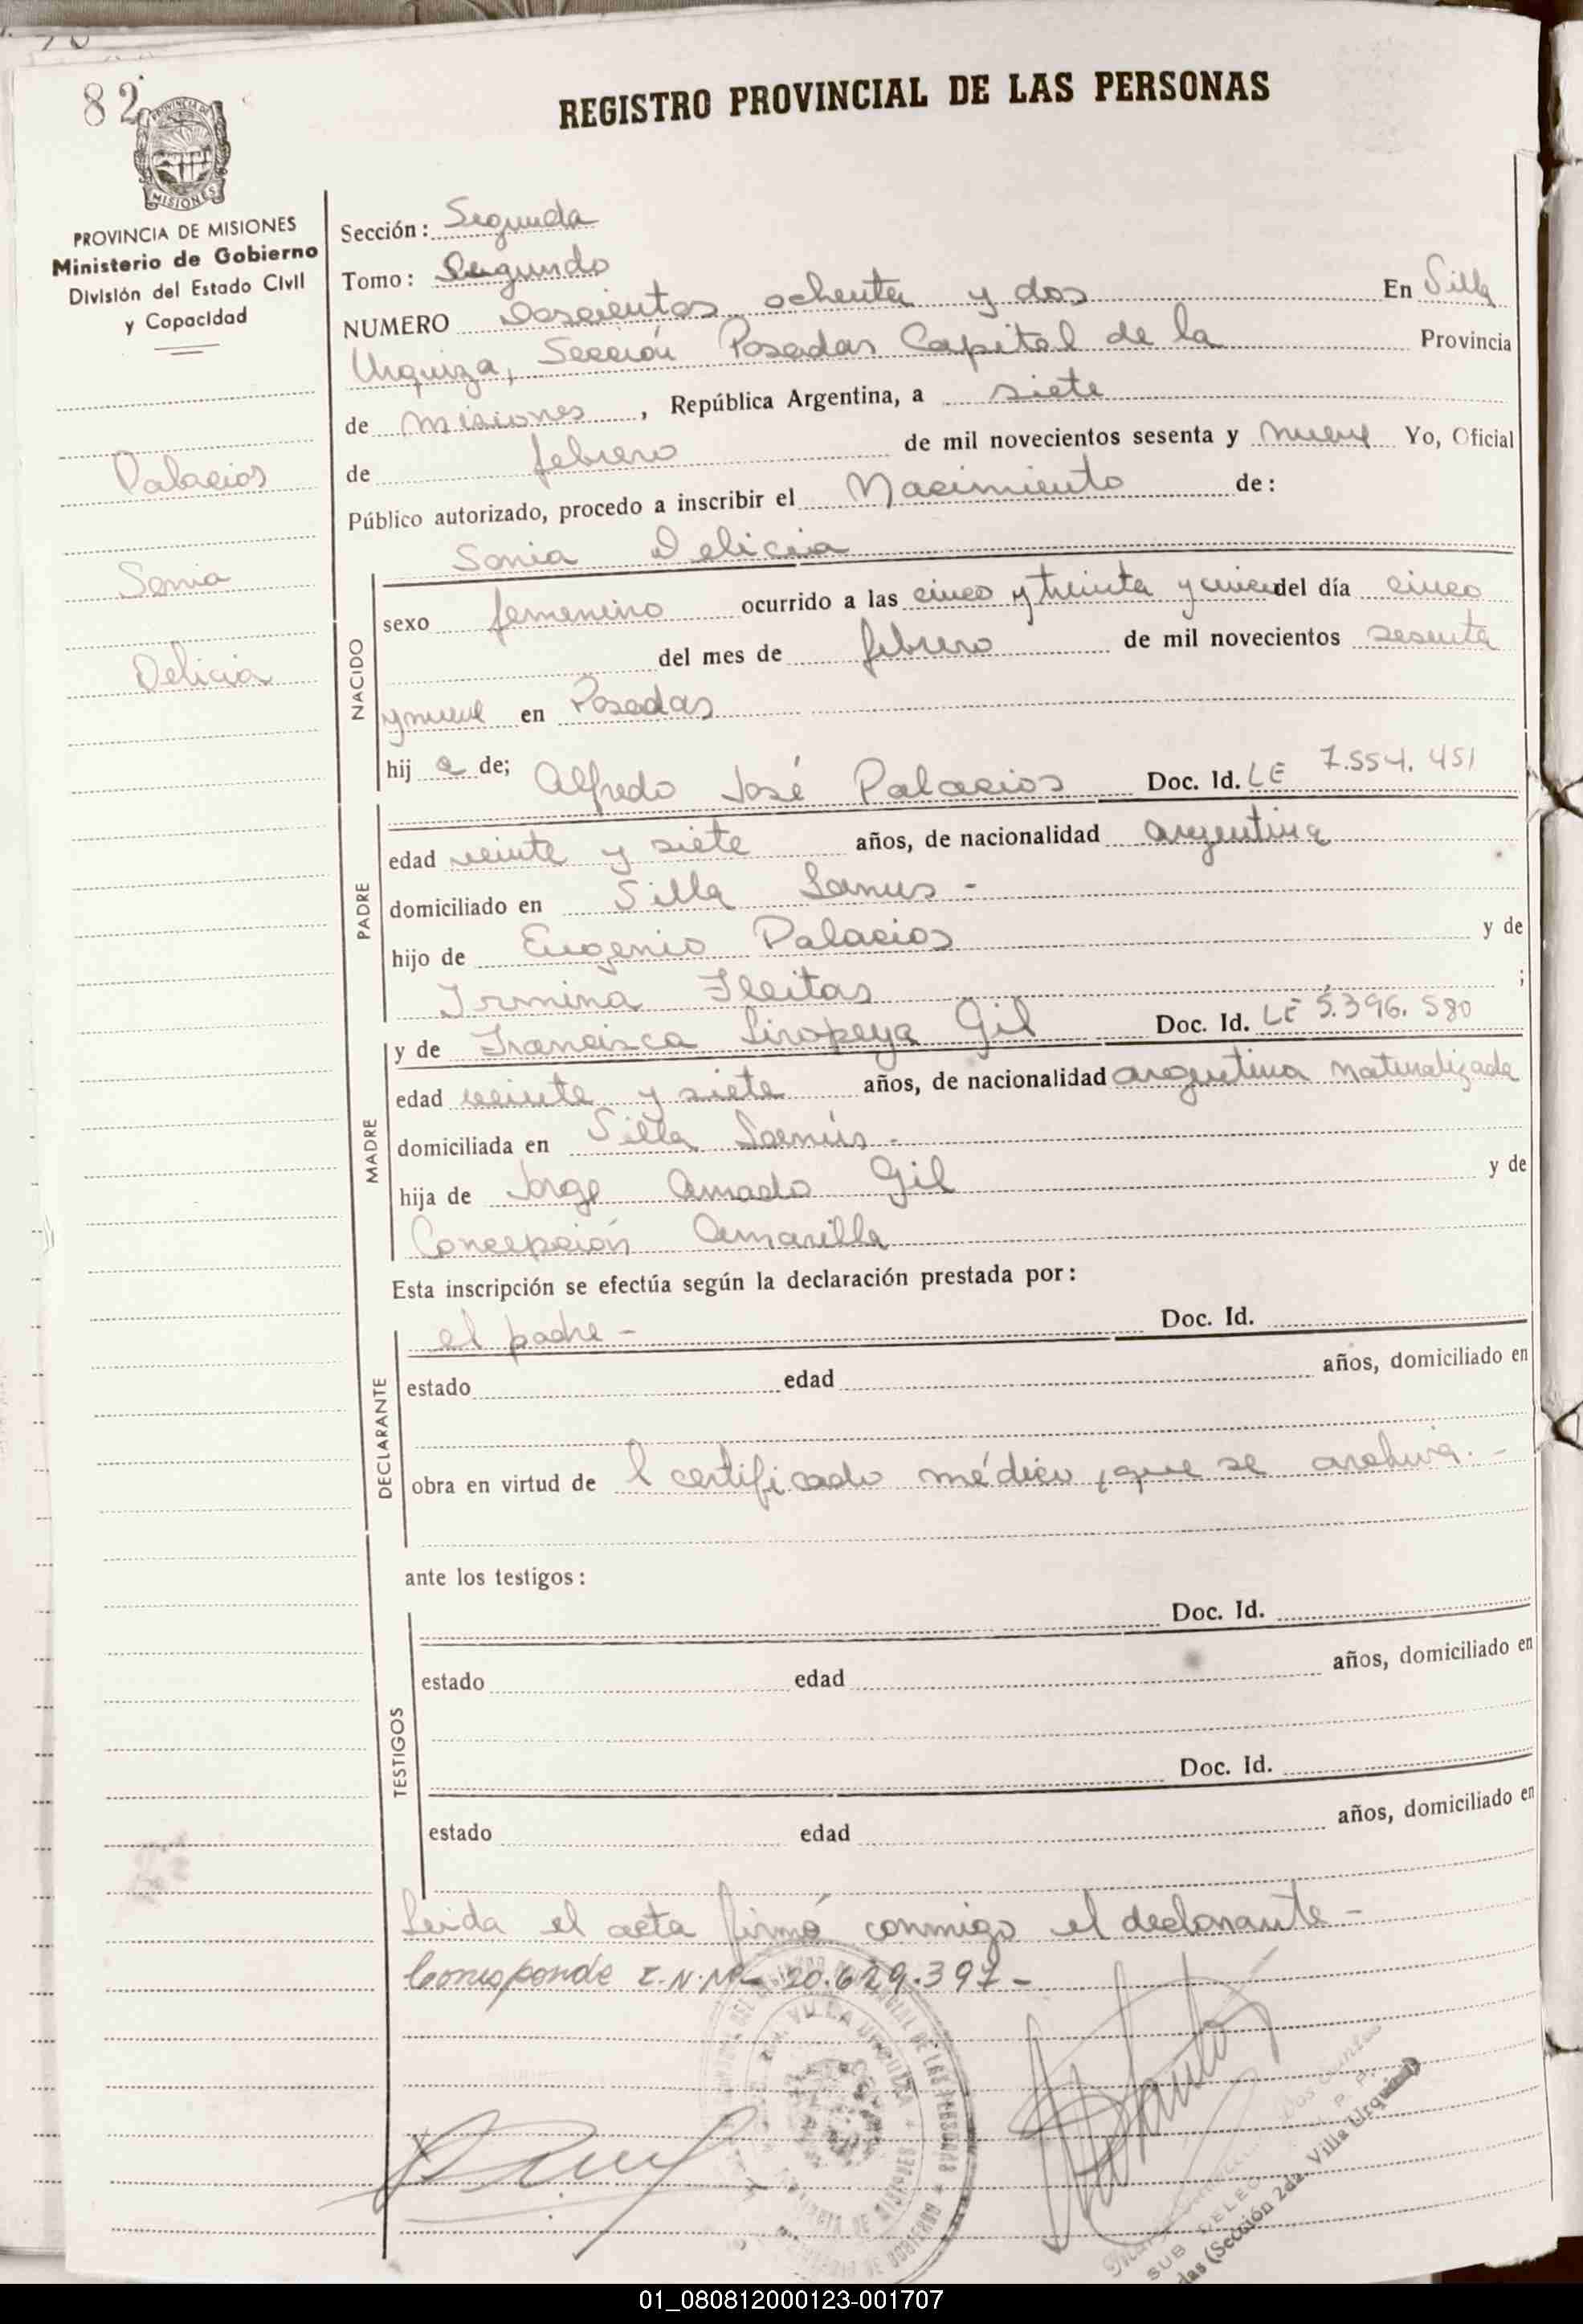 82
REGISTRO PROVINCIAL DE LAS PERSONAS
PROVINCIA DE MISIONES
Ministerio de Gobierno
División del Estado Civil
y Capacidad
Palacios
Sonia
Delicia
Sección: Segunda
Tomo: Segundo
NUMERO Doscientos ochenta y dos En Villa
Urquiza, Sección Posadas Capital de la Provincia
de Misiones, República Argentina, a siete
de febrero de mil novecientos sesenta y nueve Yo, Oficial
Público autorizado, procedo a inscribir el Nacimiento de:
Sonia Delicia
NACIDO
sexo femenino ocurrido a las cinco y treinta y cinco del día cinco
del mes de febrero de mil novecientos sesenta
y nueve en Posadas
hij a de; Alfredo José Palacios Doc. Id. LE 7.554.451
PADRE
edad veinte y siete años, de nacionalidad argentina
domiciliado en Villa Lanus -
hijo de Eugenio Palacios y de
Irmina Fleitas ;
MADRE
y de Francisca Liropeya Gil Doc. Id. LE 5.396.580
edad veinte y siete años, de nacionalidad argentina naturalizada
domiciliada en Villa Lanús -
hija de Jorge Amado Gil y de
Concepción Amarilla
Esta inscripción se efectúa según la declaración prestada por:
DECLARANTE
el padre - Doc. Id.
estado edad años, domiciliado en
obra en virtud de l certificado médico, que se archiva. -
ante los testigos:
TESTIGOS
Doc. Id.
estado edad años, domiciliado en
Doc. Id.
estado edad años, domiciliado en
Leida el acta firmó conmigo el declarante -
Corresponde E.N.Nº- 20.629.397 -
VILLA URQUIZA
SUB DELEG
(Sección 2da. Villa Urquiza)
01_080812000123-001707